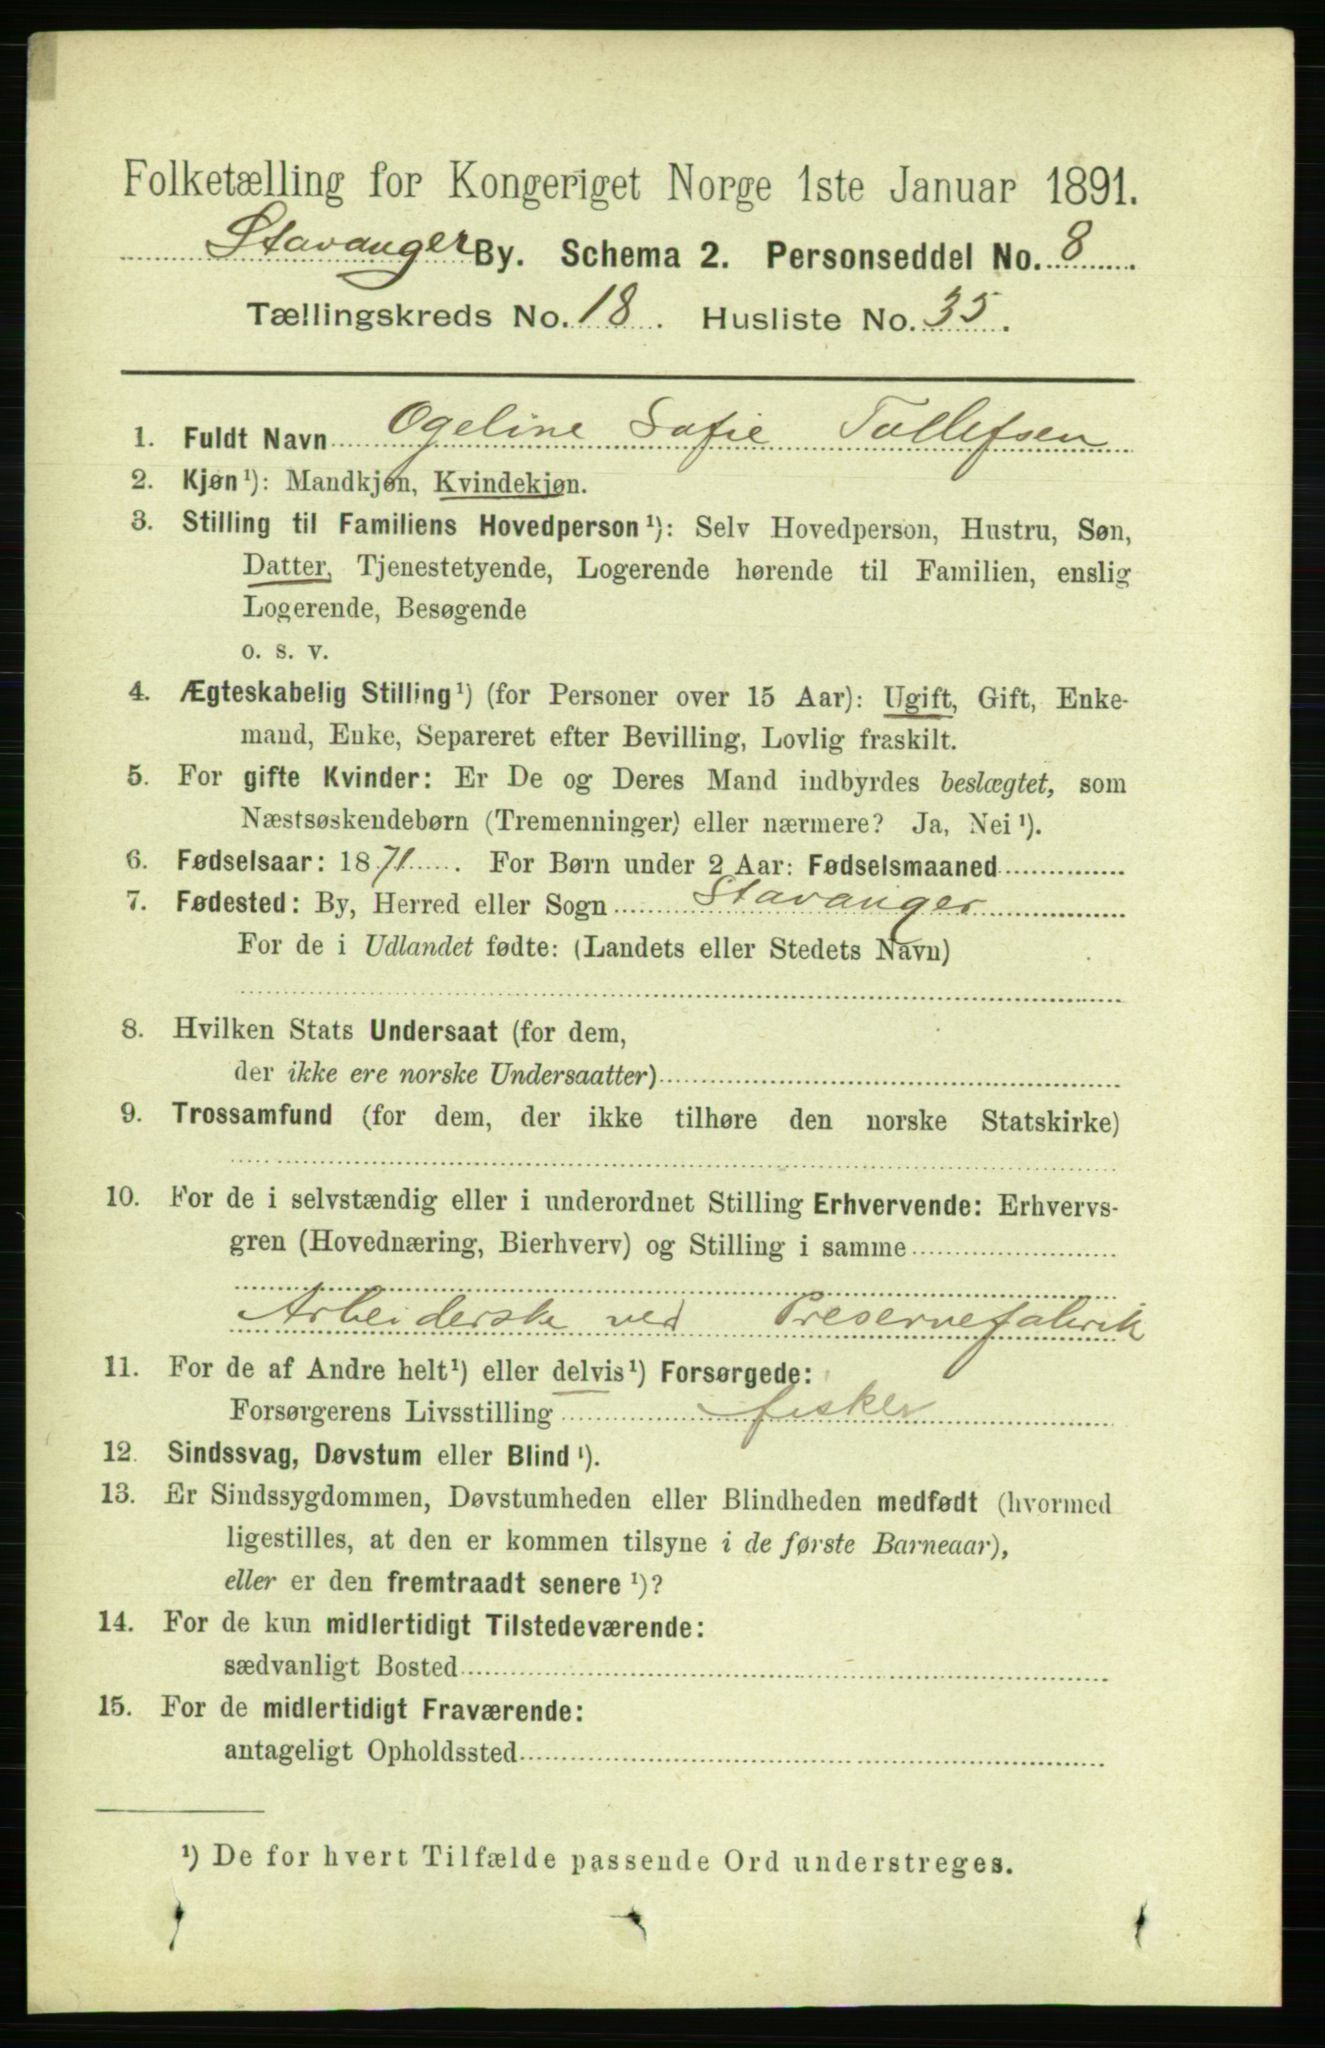 Folketælling for Kongeriget Norge 1ste Januar 1891.
Stavanger By. Schema 2. Personseddel No. 8
Tællingskreds No. 18. Husliste No. 35.
1. Fuldt Navn Ogeline Sofie Tollefsen
2. Kjøn¹): Mandkjøn, Kvindekjøn.
3. Stilling til Familiens Hovedperson¹): Selv Hovedperson, Hustru, Søn,
Datter, Tjenestetyende, Logerende hørende til Familien, enslig
Logerende, Besøgende
o. s. v.
4. Ægteskabelig Stilling¹) (for Personer over 15 Aar): Ugift, Gift, Enke-
mand, Enke, Separeret efter Bevilling, Lovlig fraskilt.
5. For gifte Kvinder: Er De og Deres Mand indbyrdes beslægtet, som
Næstsøskendebørn (Tremenninger) eller nærmere? Ja, Nei¹).
6. Fødselsaar: 1871. For Børn under 2 Aar: Fødselsmaaned
7. Fødested: By, Herred eller Sogn Stavanger
For de i Udlandet fødte: (Landets eller Stedets Navn)
8. Hvilken Stats Undersaat (for dem,
der ikke ere norske Undersaatter)
9. Trossamfund (for dem, der ikke tilhøre den norske Statskirke)
10. For de i selvstændig eller i underordnet Stilling Erhvervende: Erhvervs-
gren (Hovednæring, Bierhverv) og Stilling i samme
Arbeiderske ved Preservefabrik
11. For de af Andre helt¹) eller delvis¹) Forsørgede:
Forsørgerens Livsstilling fisker
12. Sindssvag, Døvstum eller Blind¹).
13. Er Sindssygdommen, Døvstumheden eller Blindheden medfødt (hvormed
ligestilles, at den er kommen tilsyne i de første Barneaar),
eller er den fremtraadt senere¹)?
14. For de kun midlertidigt Tilstedeværende:
sædvanligt Bosted
15. For de midlertidigt Fraværende:
antageligt Opholdssted
¹) De for hvert Tilfælde passende Ord understreges.